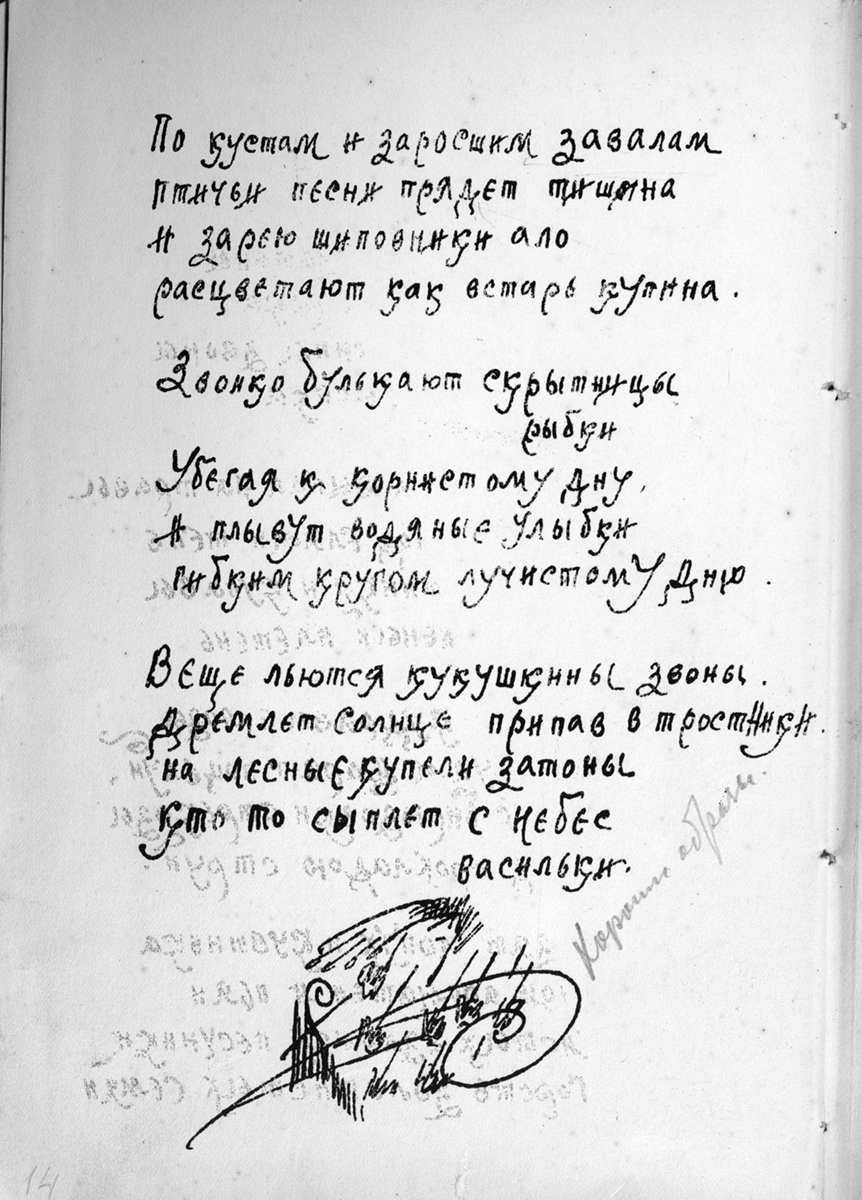 По кустам и заросшим завалам
птичьи песни прядет тишина
и зарею шиповники ало
расцветают как встарь купина.
Звонко булькают скрытницы
рыбки
Убегая к корнистому дну,
и плывут водяные улыбки
гибким кругом лучистому дню.
Веще льются кукушкины звоны.
Дремлет солнце припав в тростники.
на лесные купели затоны
кто то сыплет с небес
васильки.
Хороши образы.
14